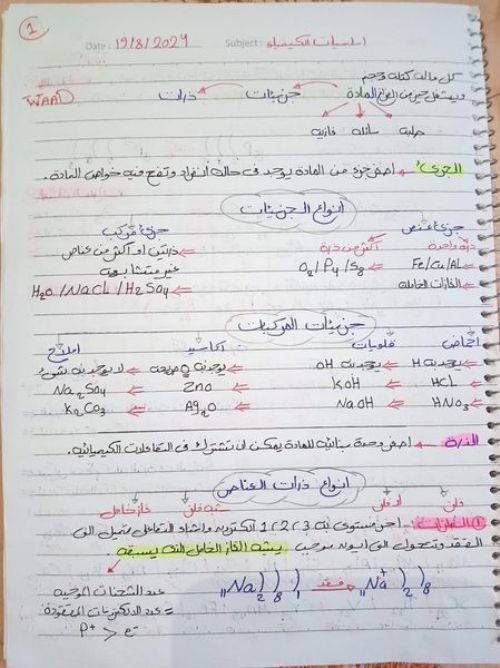 1
Date: 19/8/2024 Subject: اساسيات الكيمياء
كل ماله كتلة وحجم
ويشغل حيز من الفراغ المادة جزيئات ذرات
WAAD
صلبة سائلة غازية
الجزئ اصغر جزء من المادة يوجد فى حالة انفراد وتضح فيه خواص المادة.
انواع الجزيئات
جزئ عنصر جزئ مركب
ذرة واحدة اكثر من ذرة ذرتين او اكثر من عناصر
Fe/Cu/AL O2/P4/S8 غير متشابهه
الغازات الخاملة H2O/NaCL/H2SO4
جزيئات المركبات
احماض قلويات اكاسيد املاح
يوجد به H يوجد به OH يوجد به O لا يوجد به
HCL KOH ZnO Na2SO4
HNO3 NaOH Ag2O K2CO3
الذرة اصغر وحدة بنائية للمادة يمكن ان تشترك فى التفاعلات الكيميائيه.
انواع ذرات العناصر
فلز لا فلز شبه فلز غاز خامل
① الفلزات اخر مستوى له 1،2،3 الكترون واثناء التفاعل تميل الى
الفقد وتتحول الى ايون موجب يشبه الغاز الخامل الذى يسبقه.
11Na ) ) ) 2 8 1 فقد 11Na+ ) ) 2 8
عدد الشحنات الموجبة
= عدد الالكترونات المفقودة
P+ > e-